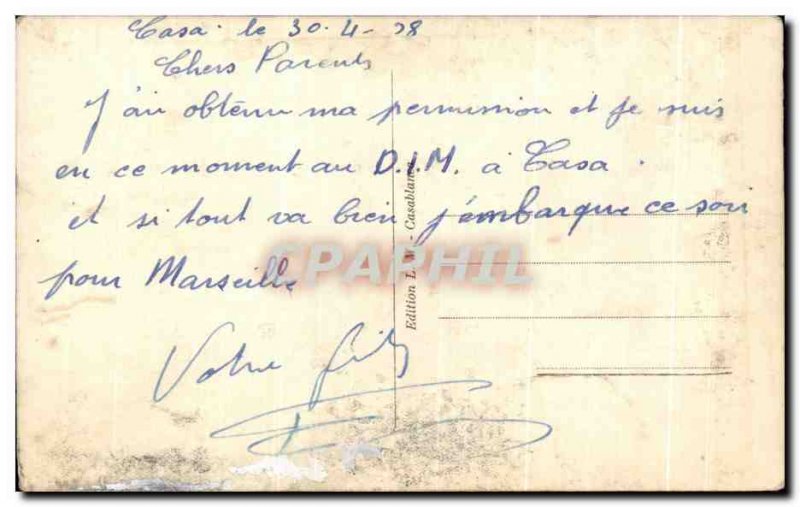 Casa. le 30-4-38
Chers Parents
J'ai obtenu ma permission et je suis
en ce moment au D.I.M. à Casa.
et si tout va bien j'embarque ce soir
pour Marseille
Votre fils
Edition L. - Casablanca
CPAPHIL